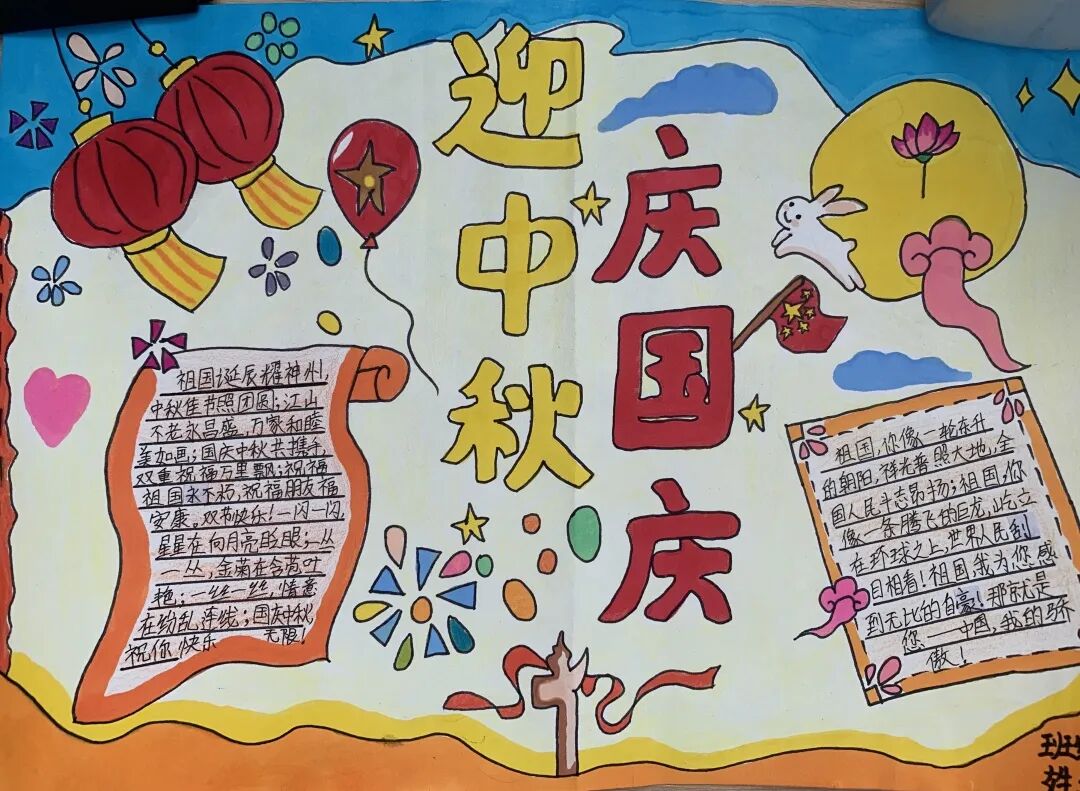 迎中秋
庆国庆
祖国诞辰耀神州,
中秋佳节照团圆;江山
不老永昌盛,万家和睦
美如画;国庆中秋共携手,
双重祝福万里飘;祝福
祖国永不朽,祝福朋友福
安康。双节快乐!一闪一闪,
星星在向月亮眨眼;一丛
一丛,金菊在令茑叶
艳;一丝一丝,情意
在纷乱连线;国庆中秋,
祝你快乐无限!
祖国,你像一轮东升
的朝阳,祥光普照大地,全
国人民斗志昂扬;祖国,你
像一条腾飞的巨龙,屹立
在环球之上,世界人民刮
目相看!祖国,我为您感
到无比的自豪!那就是
您——中国,我的骄
傲!
班
姓